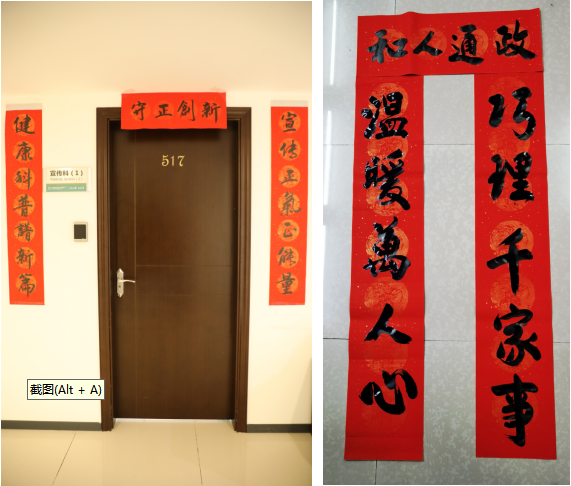 守正创新
宣传正氣正能量
健康科普譜新篇
517
宣传科（1）
截图(Alt + A)
政通人和
巧理千家事
温暖萬人心